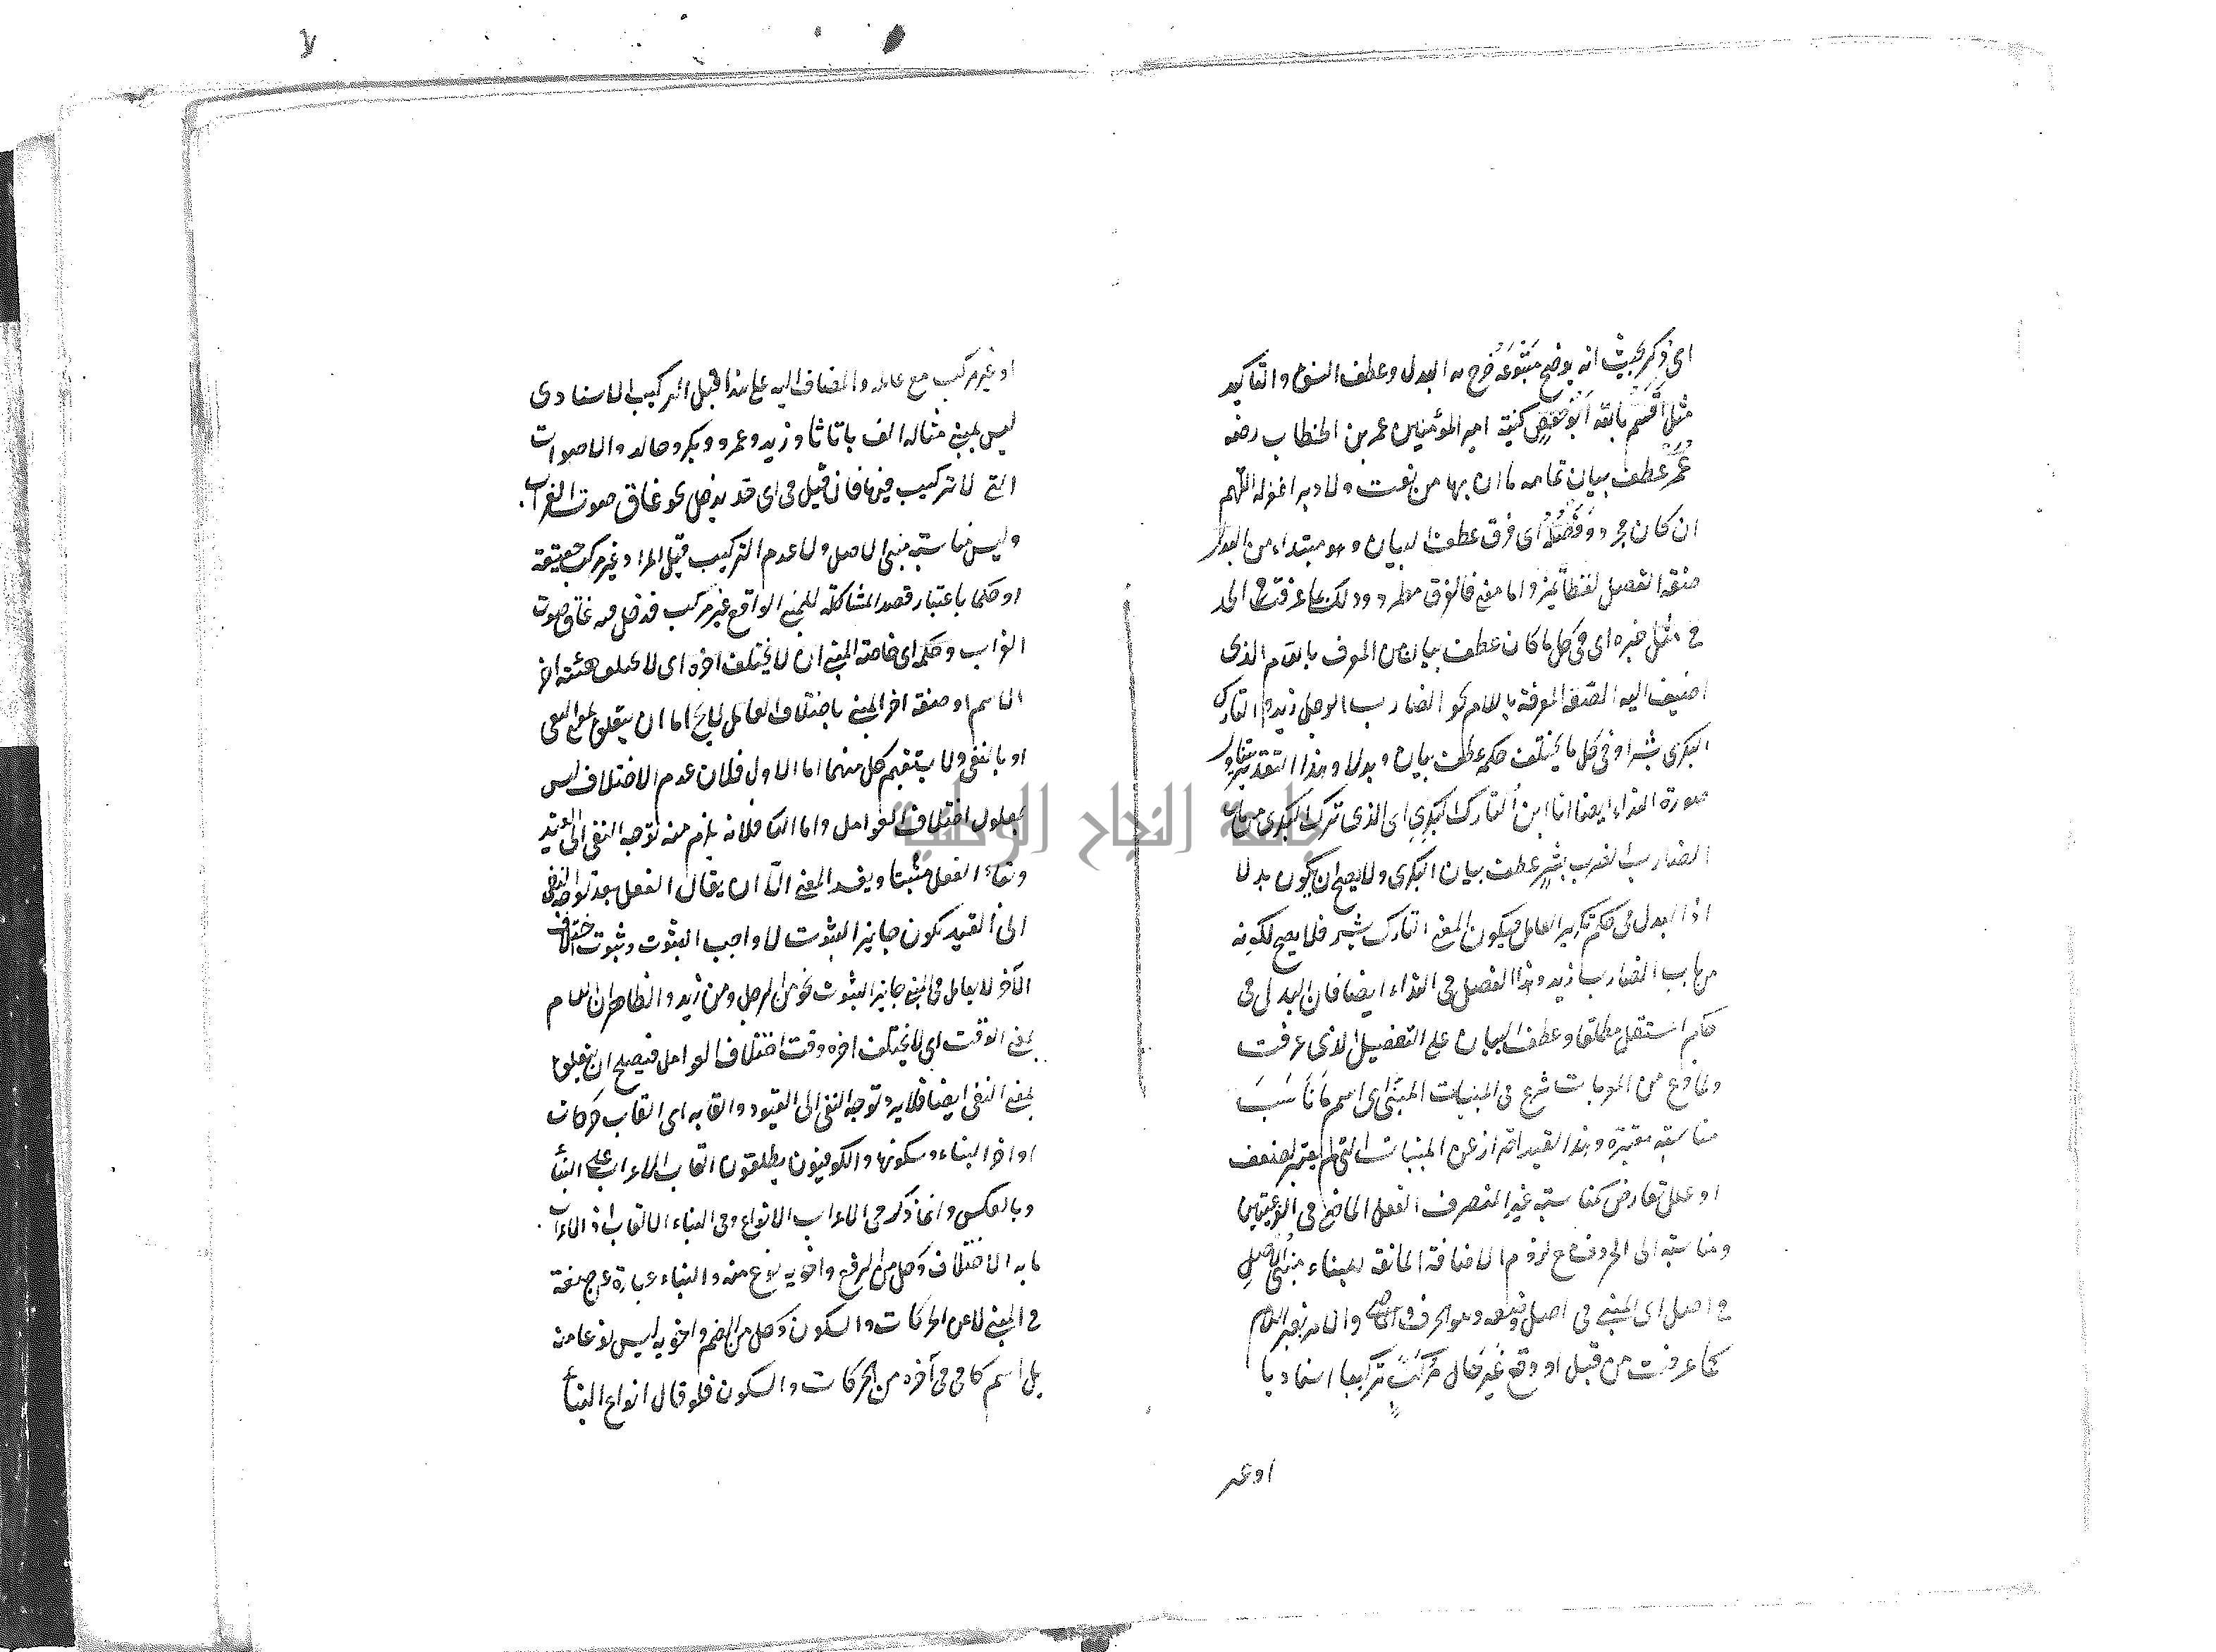 اى ذكر بحيث انه يوضح متبوعه خرج به البدل وعطف النسق والتاكيد
مثل اقسم بالله ابو حفص كنية امير المؤمنين عمر بن الخطاب رضه
عمر عطف بيان تمامه ما ان بها من نقب ولا دبر اغفر له اللهم
ان كان فجر وفصله اى فرق عطف البيان وهو مبتداء من البدل
صفة الفصل لفظا واما معنى فالفرق وذلك عرفت الحد
فى مثل خبره اى فى كل ما كان عطف بيان من المعرف باللام الذى
اضيف اليه الصفة المعرفة باللام نحو الضارب الرجل زيد والتارك
البكرى بشر او فى كل ما يختلف حكمه عطف بيان وبدلا وهذا التقدير
صورة النداء ايضا انا ابن التارك البكرى اى الذى ترك البكرى من باب
الضارب الضرب بشر عطف بيان البكرى ولا يصح ان يكون بدلا
اذ البدل فى حكم تكرير العامل فيكون المعنى التارك بشر فلا يصح لكونه
من باب الضارب زيد وهذا الفصل فى النداء ايضا فان البدل فى
حكم المستقل مطلقا وعطف البيان على التفصيل الذى عرفت
ولما فرغ من المعربات شرع فى المبنيات المبنى اى اسم ما ناسب
مناسبة معتبرة وهذا القيد احتراز عن المبنيات التى لم يعتبر لضعف
او على تعارض كمناسبة غير المنصرف الفعل الماضى فى الفرعيتين
ومناسبة اى الحروف مع لزوم الاضافة المانعة للبناء مبنى الاصل
فى اصل اى المبنى فى اصل وضعه وهو الحرف والماضى والامر بغير اللام
كما عرفت من قبل او وقع غير حال مركب تركيبا اسناديا
او غير
او غير مركب مع عامله والمضاف اليه على هذا قبل التركيب الاسنادى
ليس بمبنى مثاله الف با تا ثا وزيد وعمرو وبكر وخالد والاصوات
التى لا تركيب فيها فان قيل فى اى قد يدخل نحو غاق صوت الغراب
وليس مناسبة مبنى الاصل ولا عدم التركيب قيل المراد غير مركب حقيقة
او حكما باعتبار قصد المشاكلة للمبنى الواقع غير مركب فدخل فيه غاق صوت
الغراب وحكمه اى خاصته المبنى ان لا يختلف اخره اى لا يختلف هيئة اخر
الاسم او صفة اخر المبنى باختلاف العامل اما ان يتعلق
او بالنفى ولا يستقيم كل منهما اما الاول فلان عدم الاختلاف ليس
بمعلول اختلاف العوامل واما الثانى فلانه يلزم منه توجه النفى الى القيد
وبقاء الفعل مثبتا ويفسد المعنى الا ان يقال الفعل بعد توجه النفى
الى القيد يكون جائز الثبوت لا واجب الثبوت وثبوت اختلاف
الآخر لا بعامل فى المبنى جائز الثبوت نحو من الرجل ومن زيد والظاهر ان اللام
بمعنى الوقت اى لا يختلف اخره وقت اختلاف العوامل فيصح ان يتعلق
بمعنى النفى ايضا فلا يرد توجه النفى الى القيود والقابه اى القاب حركات
اواخر البناء وسكونها والكوفيون يطلقون القاب الاعراب على البناء
وبالعكس وانما ذكر فى الاعراب الانواع وفى البناء الالقاب اذ الاعراب
ما به الاختلاف وكل من الرفع واخويه نوع منه والبناء عبارة عن صفة
فى المبنى لا عن الحركات والسكون وكل من الضم واخويه ليس نوعا منه
بل اسم كا فى فى آخره من الحركات والسكون فلو قال انواع البناء
جامعة النجاح الوطنية